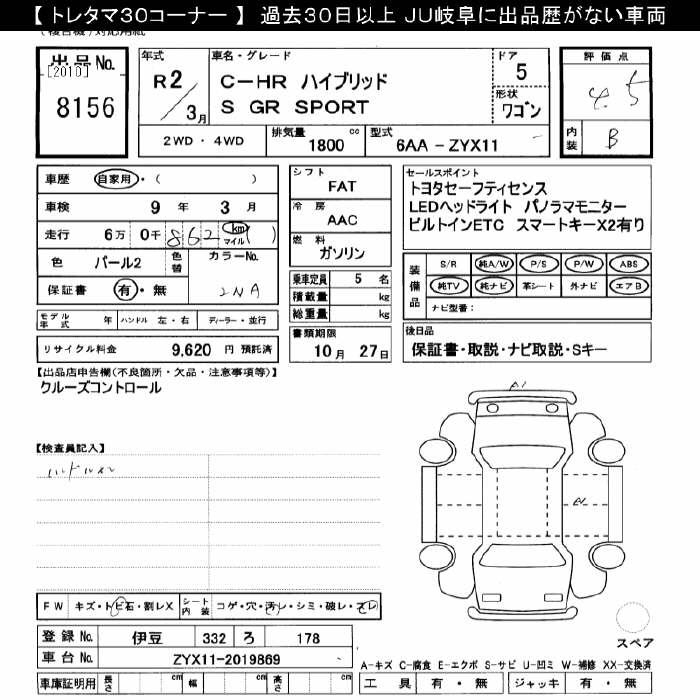 【 トレタマ30コーナー 】 過去30日以上 JU岐阜に出品歴がない車両
出品 No. [2010] 8156
年式 R2/3月
車名・グレード
C-HR ハイブリッド
S GR SPORT
ドア 5
形状 ワゴン
評価点 4.5
内装 B
2WD ・ 4WD 排気量 1800 cc 型式 6AA - ZYX11
車歴 自家用・( )
車検 9 年 3 月
走行 6万 0千 862 km マイル ( )
色 パール2 色替 カラーNo. 2NA
保証書 有・無
モデル年式 年 ハンドル 左・右 ディーラー・並行
リサイクル料金 9,620 円 預託済
シフト FAT
冷房 AAC
燃料 ガソリン
乗車定員 5 名
積載量 kg
総重量 kg
書類期限
10月 27日
セールスポイント
トヨタセーフティセンス
LEDヘッドライト パノラマモニター
ビルトインETC スマートキーX2有り
装備品 S/R 純A/W P/S P/W ABS
純TV 純ナビ 革シート 外ナビ エアB
ナビ型番:
後日品
保証書・取説・ナビ取説・Sキー
【出品店申告欄(不良箇所・欠品・注意事項等)】
クルーズコントロール
【検査員記入】
A1
FW キズ・トビ石・割レX シート内装 コゲ・穴・汚レ・シミ・破レ・スレ
登録 No. 伊豆 332 ろ 178
車台 No. ZYX11-2019869
車庫証明用 長さ cm 幅 cm 高さ cm
スペア
A-キズ C-腐食 E-エクボ S-サビ U-凹ミ W-補修 XX-交換済
工具 有・無 ジャッキ 有・無